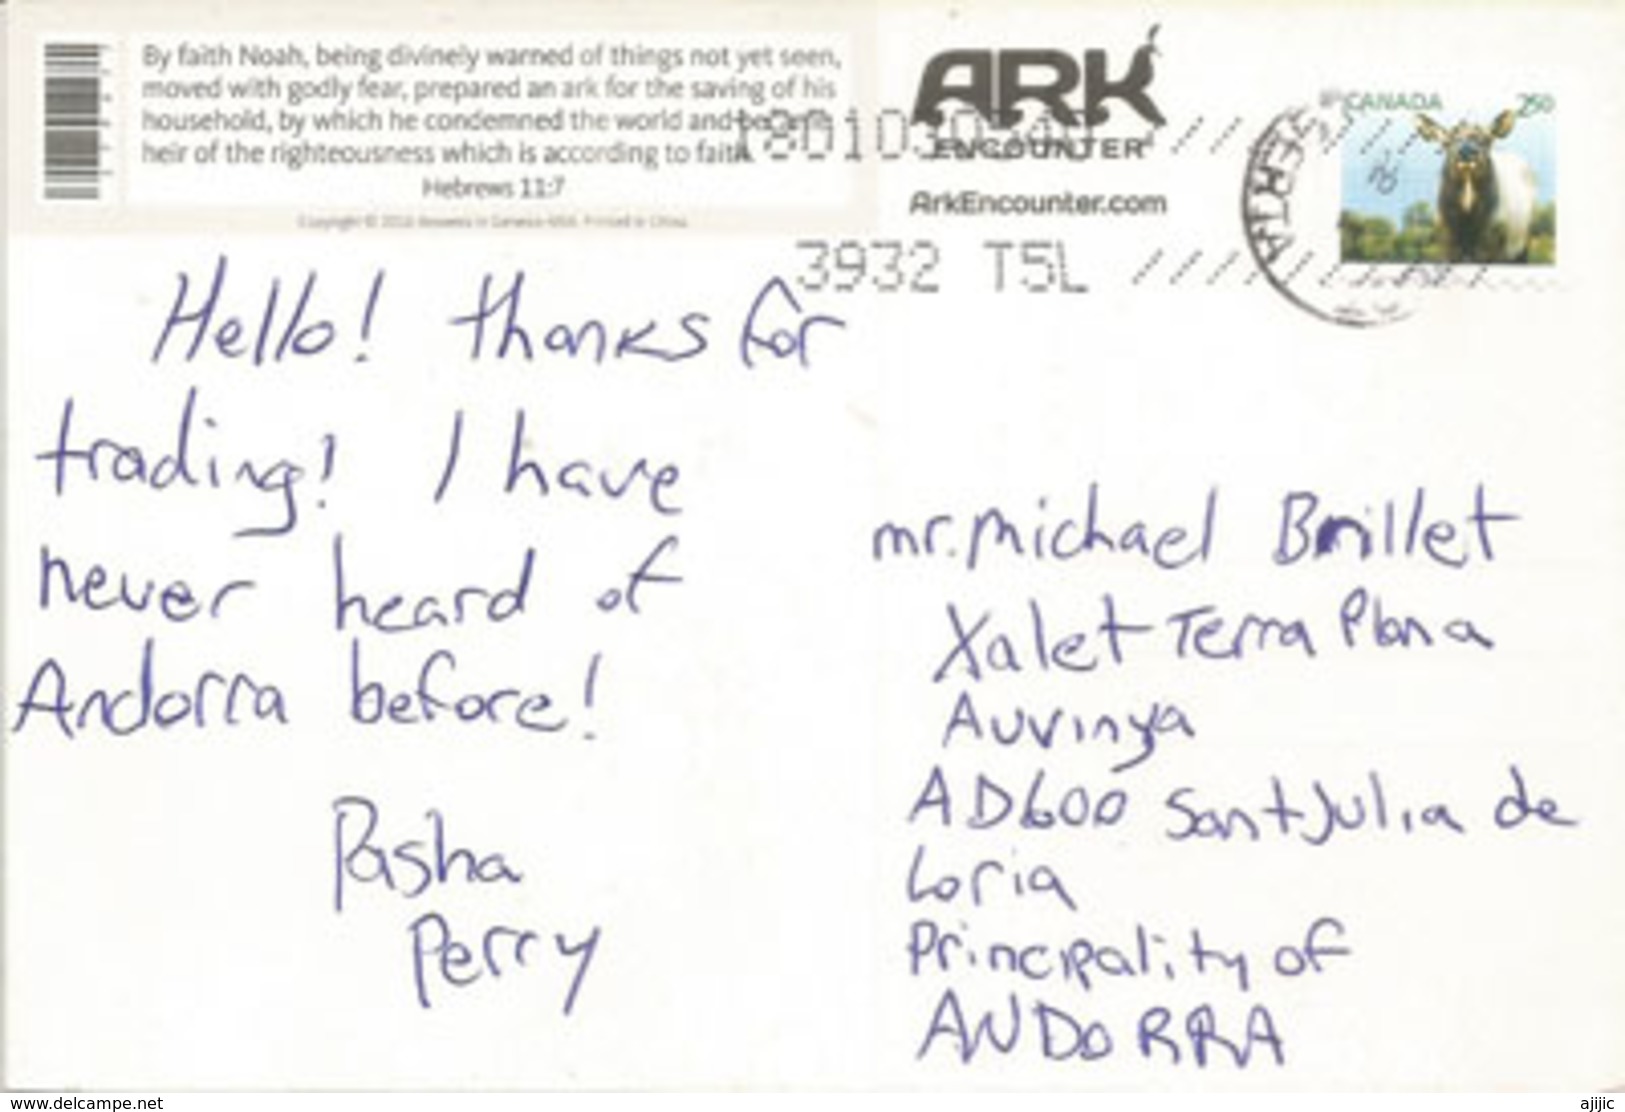 By faith Noah, being divinely warned of things not yet seen,
moved with godly fear, prepared an ark for the saving of his
household, by which he condemned the world and became
heir of the righteousness which is according to faith.
Hebrews 11:7
Copyright © Answers in Genesis-USA. Printed in China.
ARK
ENCOUNTER
ArkEncounter.com
CANADA 250
3932 T5L
Hello! thanks for
trading! I have
never heard of
Andorra before!
Pasha
Perry
mr. Michael Brillet
Xalet Terra Plana
Auvinya
AD600 Sant Julia de
Loria
Principality of
ANDORRA
www.delcampe.net
ajijic